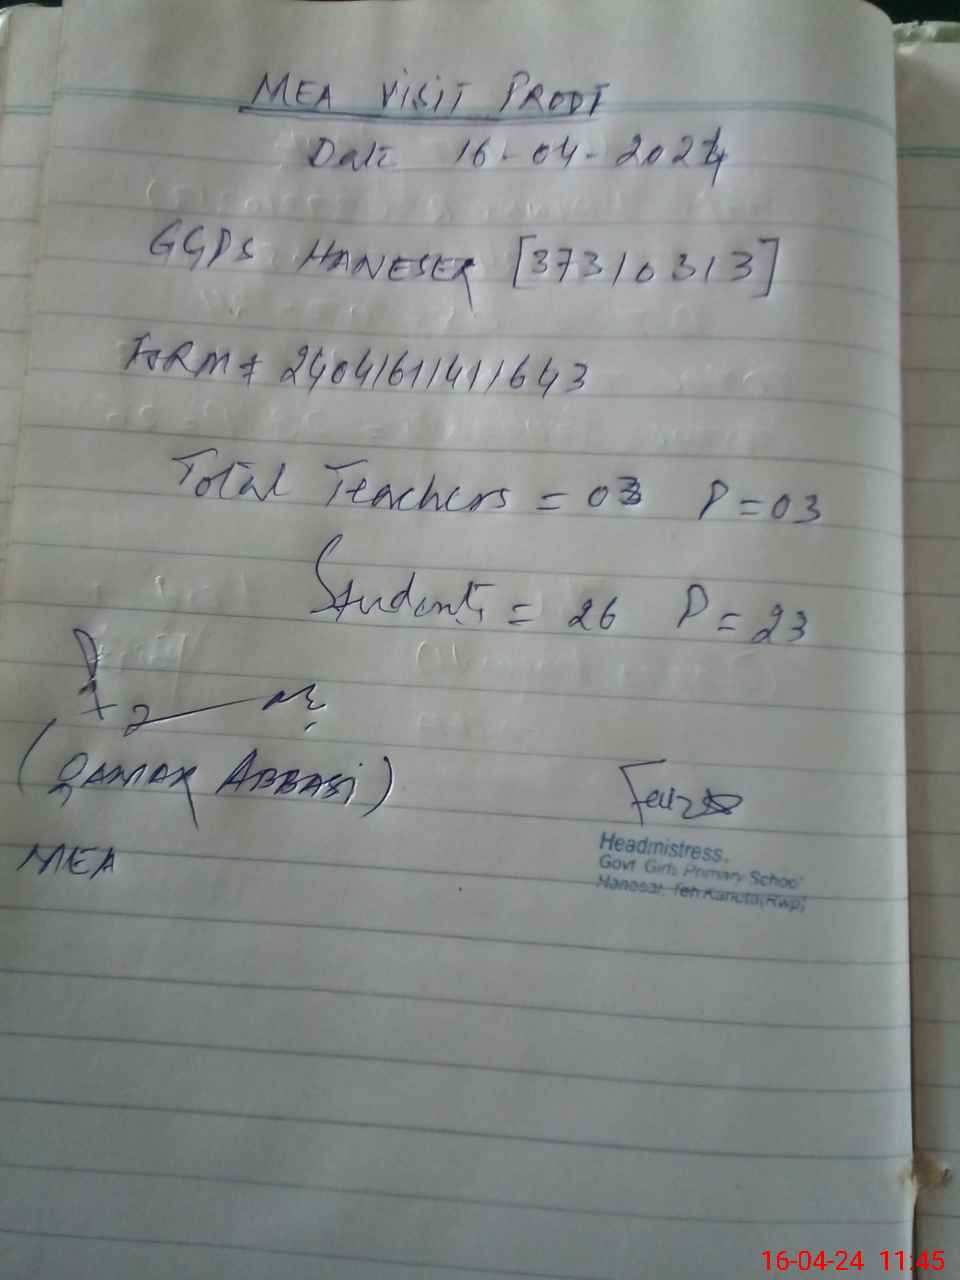 MEA VISIT PROOF
Date 16-04-2024
GGPS HANESER [37310313]
FORM # 24041611411643
Total Teachers = 03 P = 03
Students = 26 P = 23
(QAMAR ABBASI)
MEA
Headmistress.
Govt. Girls Primary School
Hanesar, Teh Kahuta (Rwp)
16-04-24 11:45